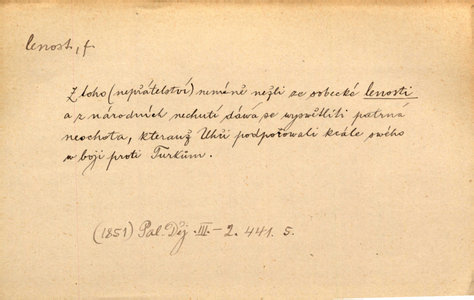 lenost, f
Z toho (nepřátelství) neméně nežli ze sobecké lenosti
a z národních nechutí dává se vyswětliti patrná
neochota, kterauž Uhři podporowali krále swého
w boji proti Turkům.
(1851) Pal. Děj. III – 2. 441. 5.